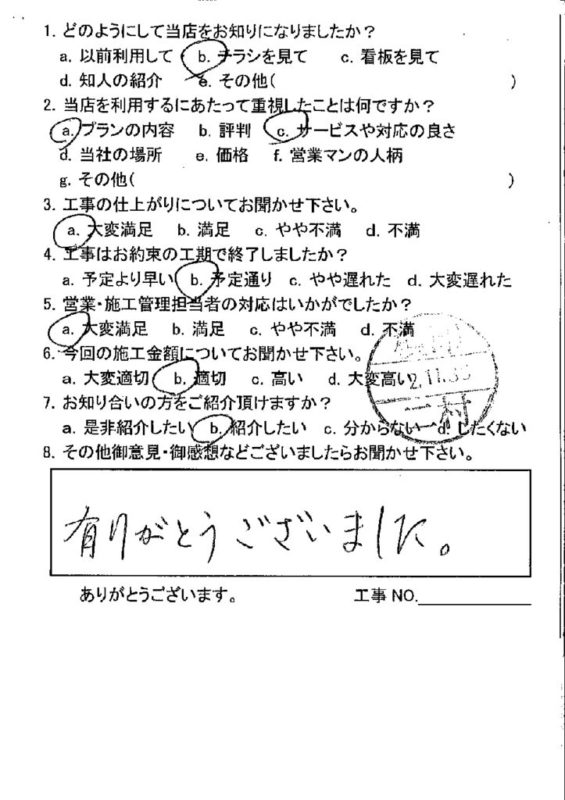 1. どのようにして当店をお知りになりましたか？
a. 以前利用して b. チラシを見て c. 看板を見て
d. 知人の紹介 e. その他( )
2. 当店を利用するにあたって重視したことは何ですか？
a. プランの内容 b. 評判 c. サービスや対応の良さ
d. 当社の場所 e. 価格 f. 営業マンの人柄
g. その他( )
3. 工事の仕上がりについてお聞かせ下さい。
a. 大変満足 b. 満足 c. やや不満 d. 不満
4. 工事はお約束の工期で終了しましたか？
a. 予定より早い b. 予定通り c. やや遅れた d. 大変遅れた
5. 営業・施工管理担当者の対応はいかがでしたか？
a. 大変満足 b. 満足 c. やや不満 d. 不満
6. 今回の施工金額についてお聞かせ下さい。
a. 大変適切 b. 適切 c. 高い d. 大変高い
7. お知り合いの方をご紹介頂けますか？
a. 是非紹介したい b. 紹介したい c. 分からない d. したくない
8. その他御意見・御感想などございましたらお聞かせ下さい。
有りがとうございました。
ありがとうございます。 工事NO.
村